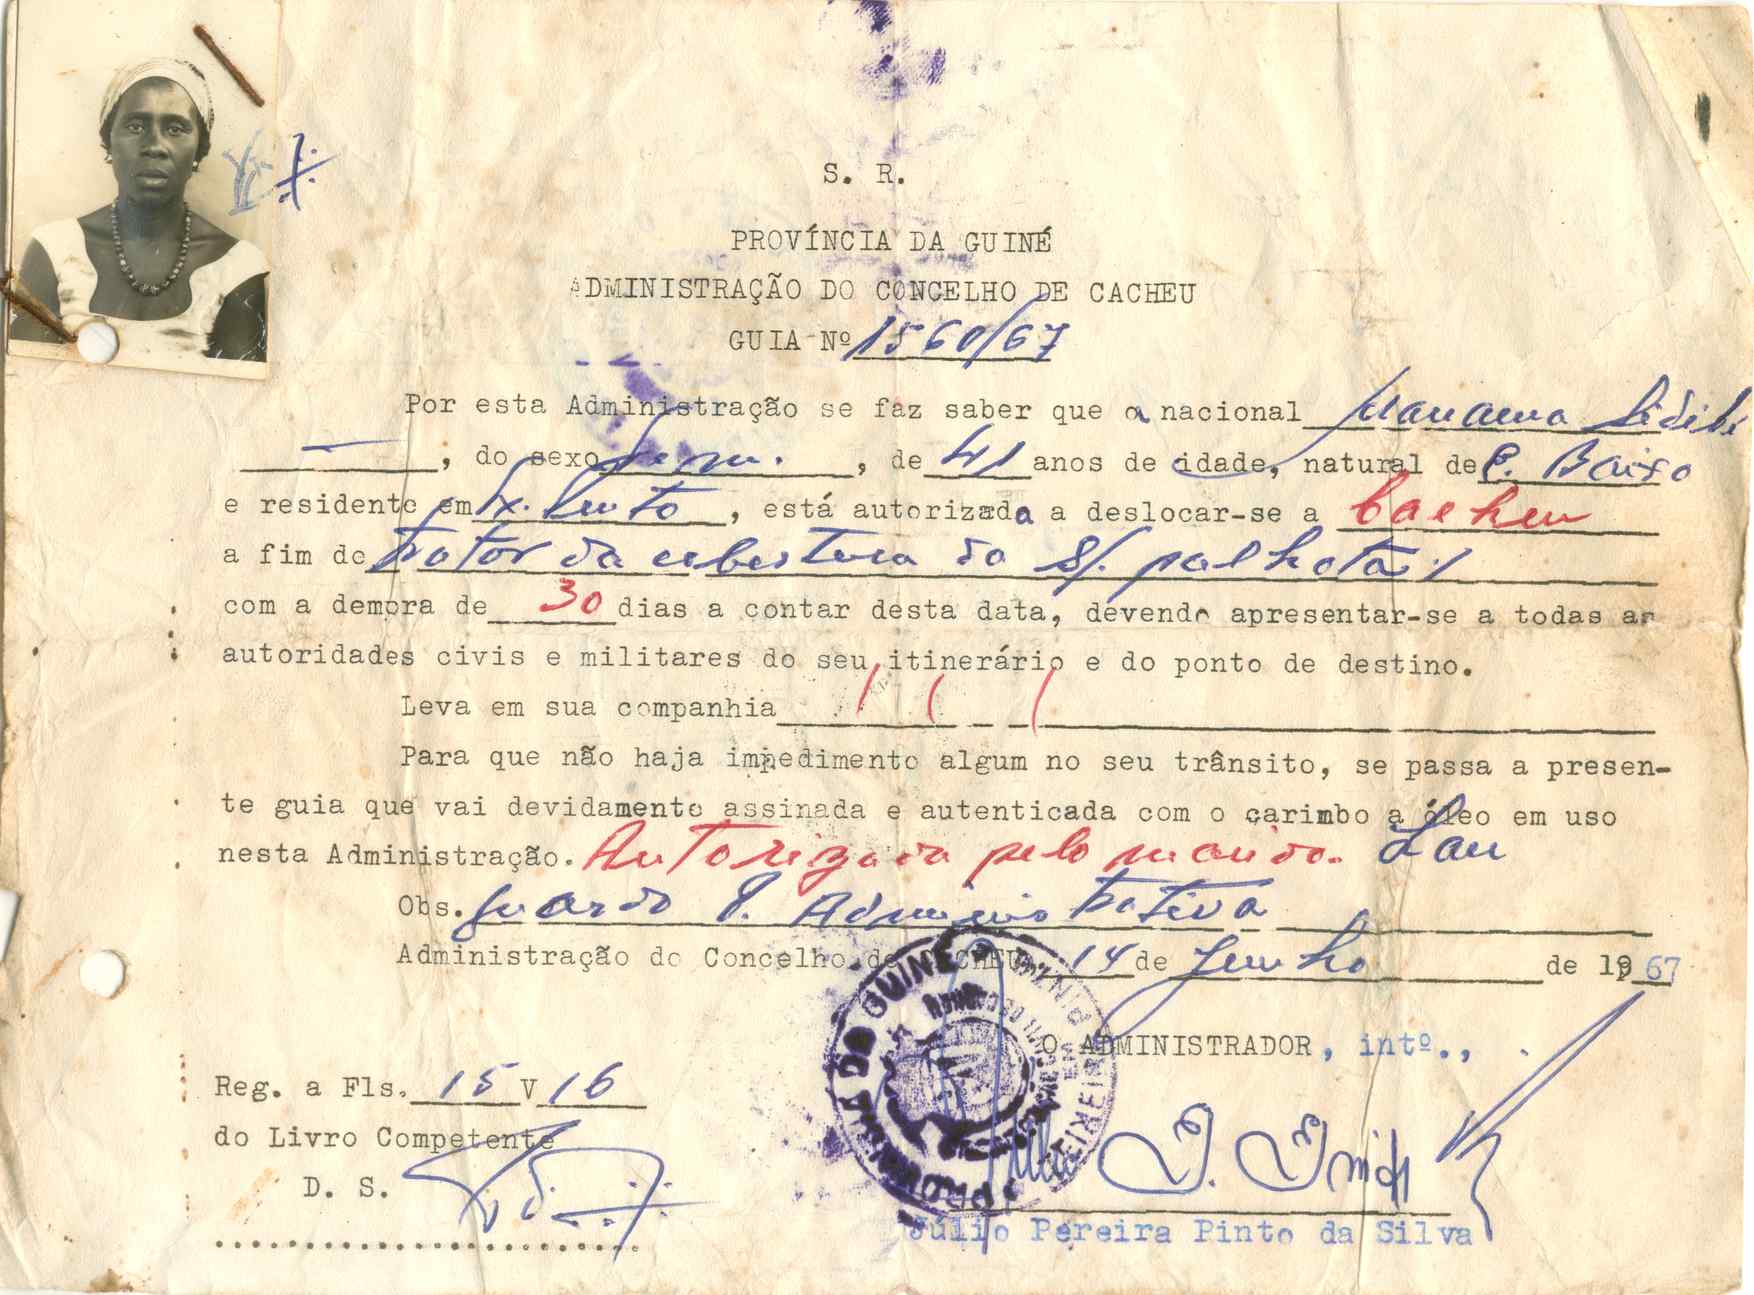 S. R.
PROVÍNCIA DA GUINÉ
ADMINISTRAÇÃO DO CONCELHO DE CACHEU
GUIA Nº 1560/67
Por esta Administração se faz saber que a nacional
, do sexo fem. , de 41 anos de idade, natural de
e residente em , está autorizada a deslocar-se a Cacheu
a fim de tratar da cobertura da s/. palhota
com a demora de 30 dias a contar desta data, devendo apresentar-se a todas as
autoridades civis e militares do seu itinerário e do ponto de destino.
Leva em sua companhia
Para que não haja impedimento algum no seu trânsito, se passa a presen-
te guia que vai devidamente assinada e autenticada com o carimbo a óleo em uso
nesta Administração. Autorizada pelo marido.
Obs. guarda P. Administrativa
Administração do Concelho de CACHEU 14 de Junho de 1967
O ADMINISTRADOR, intº.,
Reg. a Fls. 15 V 16
do Livro Competente
D. S.
PROVÍNCIA DA GUINÉ
Júlio Pereira Pinto da Silva